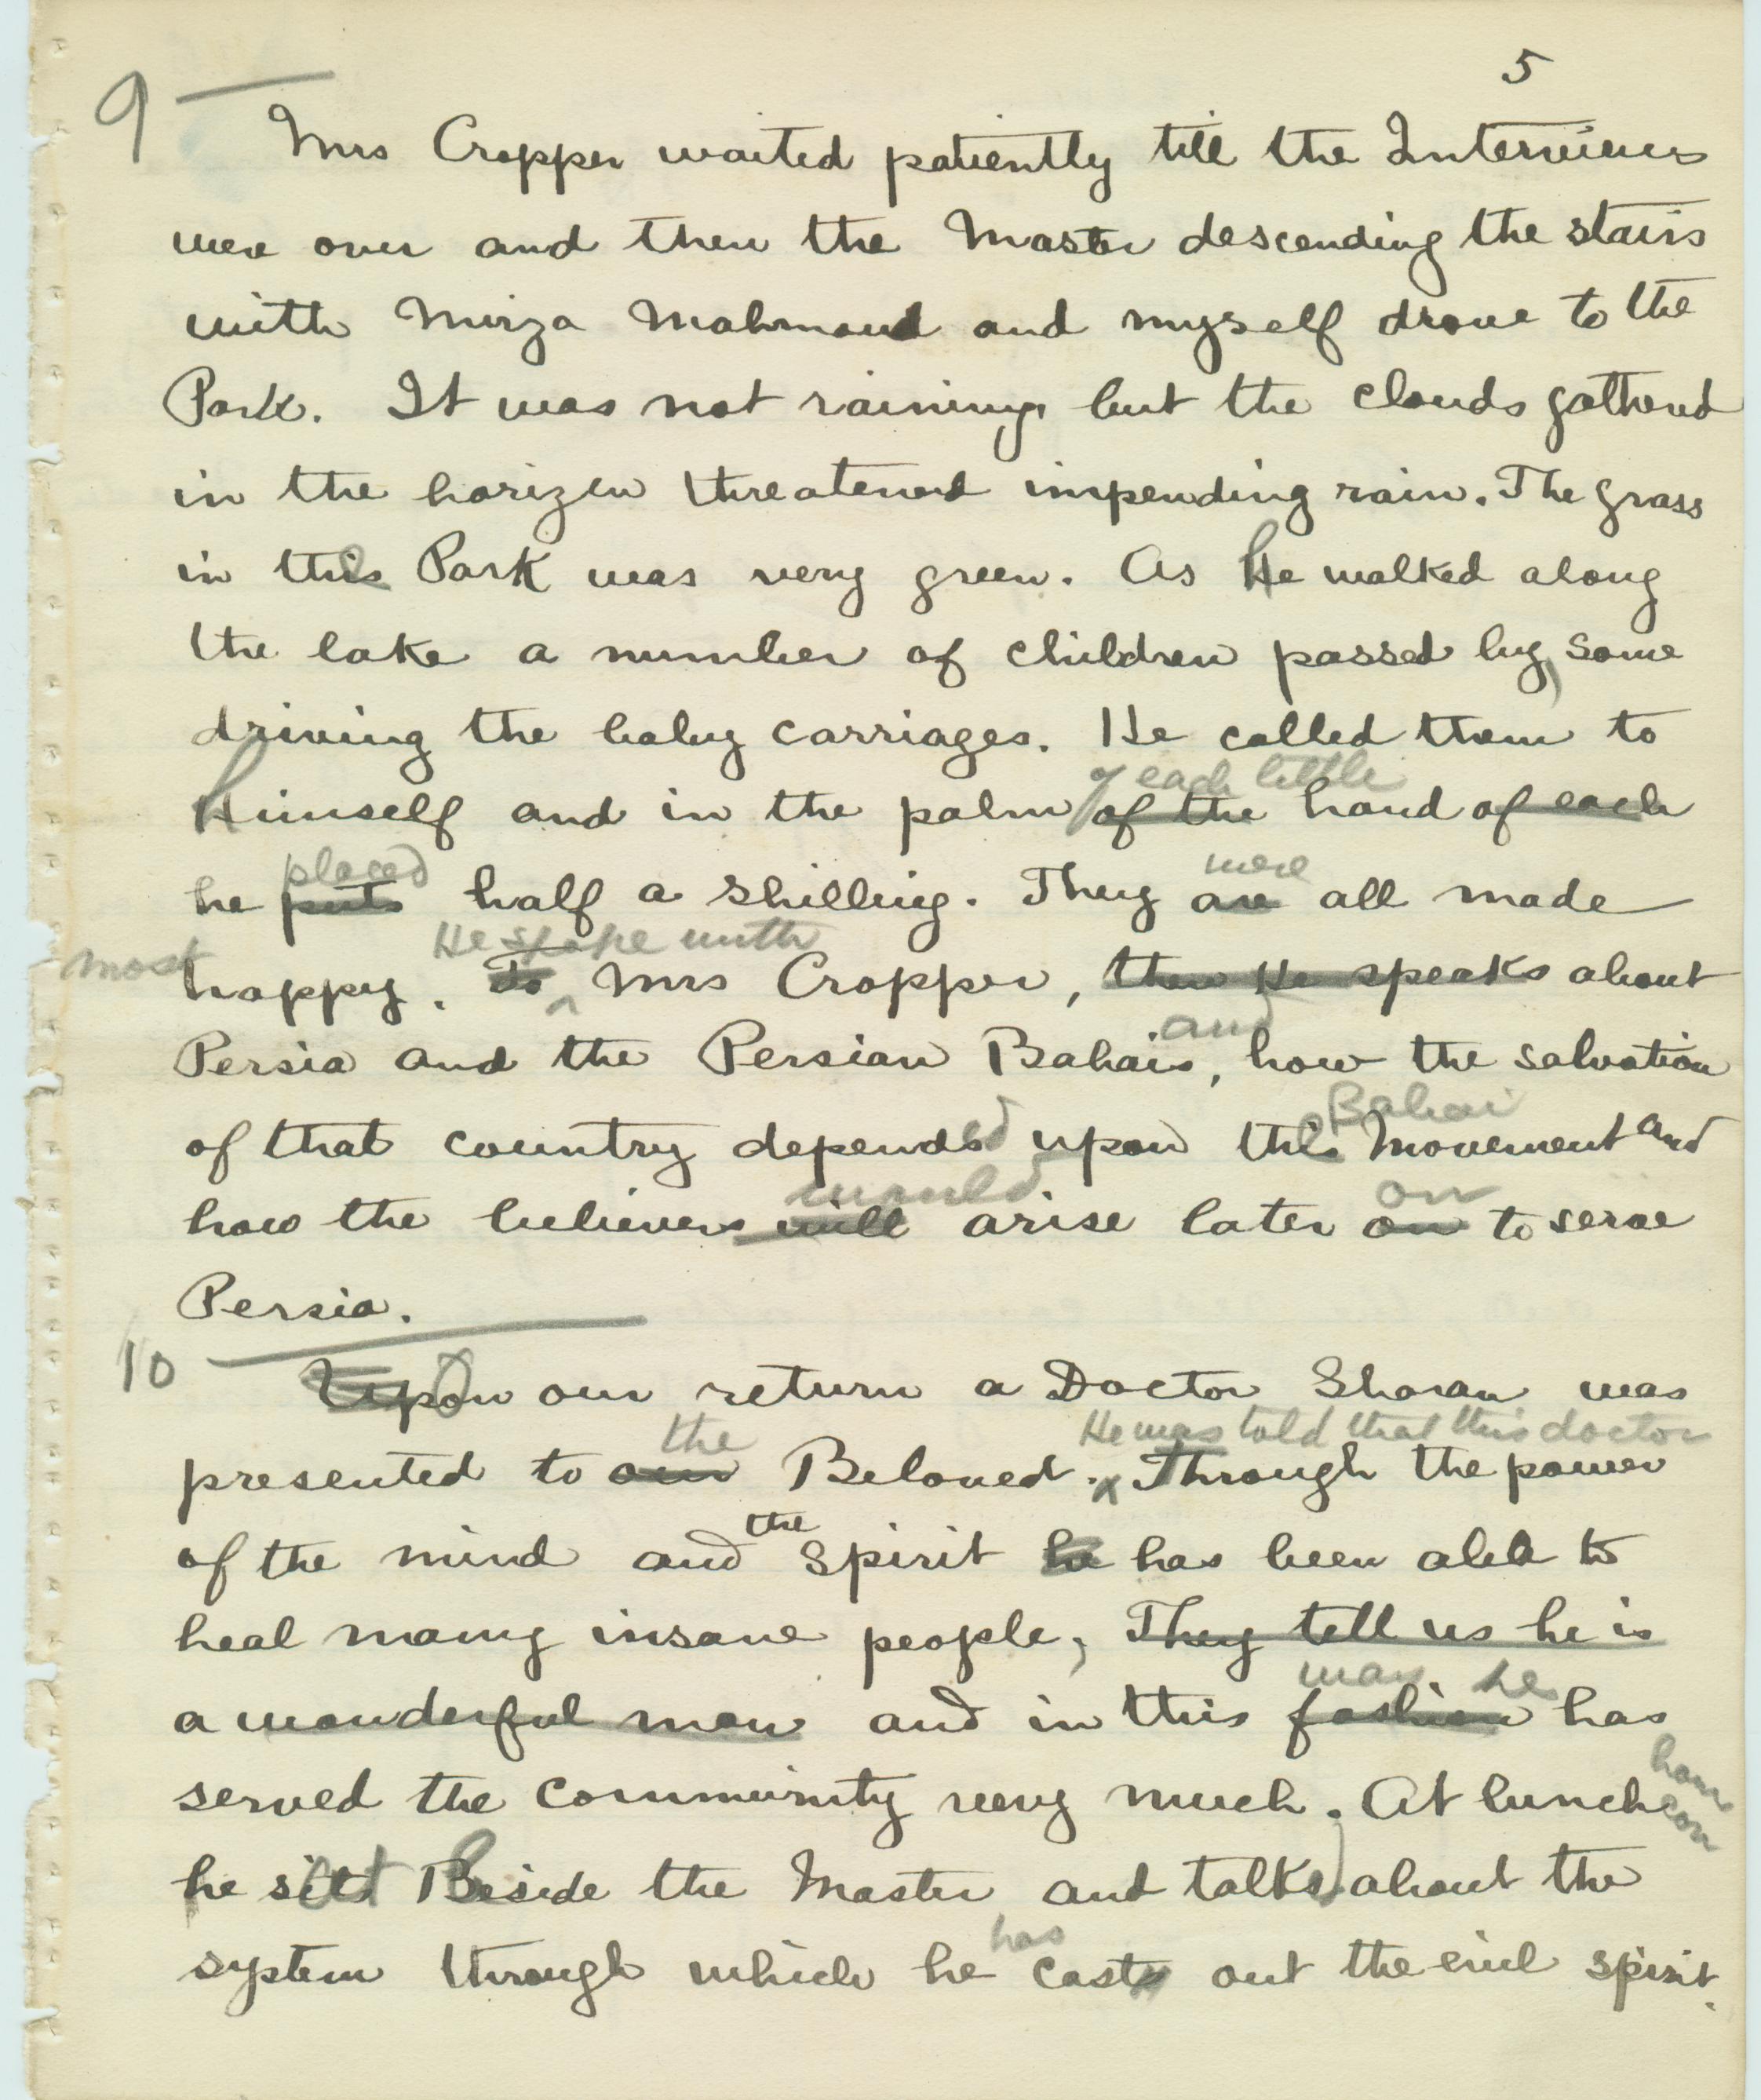 5
9
Mrs Cropper waited patiently till the Interviews
were over and then the Master descending the stairs
with Mirza Mahmoud and myself drove to the
Park. It was not raining but the clouds gathered
in the horizen threatened impending rain. The grass
in the Park was very green. As He walked along
the lake a number of children passed by, some
driving the baby carriages. He called them to
of each little
Himself and in the palm of the hand of each
placed were
he puts half a shilling. They are all made
most He spoke with
happy. To Mrs Cropper, then He speaks about
and
Persia and the Persian Bahais, how the salvation
Bahai
of that country depended upon the Movement and
would on
how the believers will arise later on to serve
Persia.
10
Upon our return a Doctor Sharan was
the He was told that this doctor
presented to our Beloved. Through the power
the
of the mind and Spirit he has been able to
heal many insane people, They tell us he is
man he
a wonderful man and in this fashion has
served the community very much. At luncheon
he sat Beside the Master and talks about the
has
system through which he casts out the evil spirit.